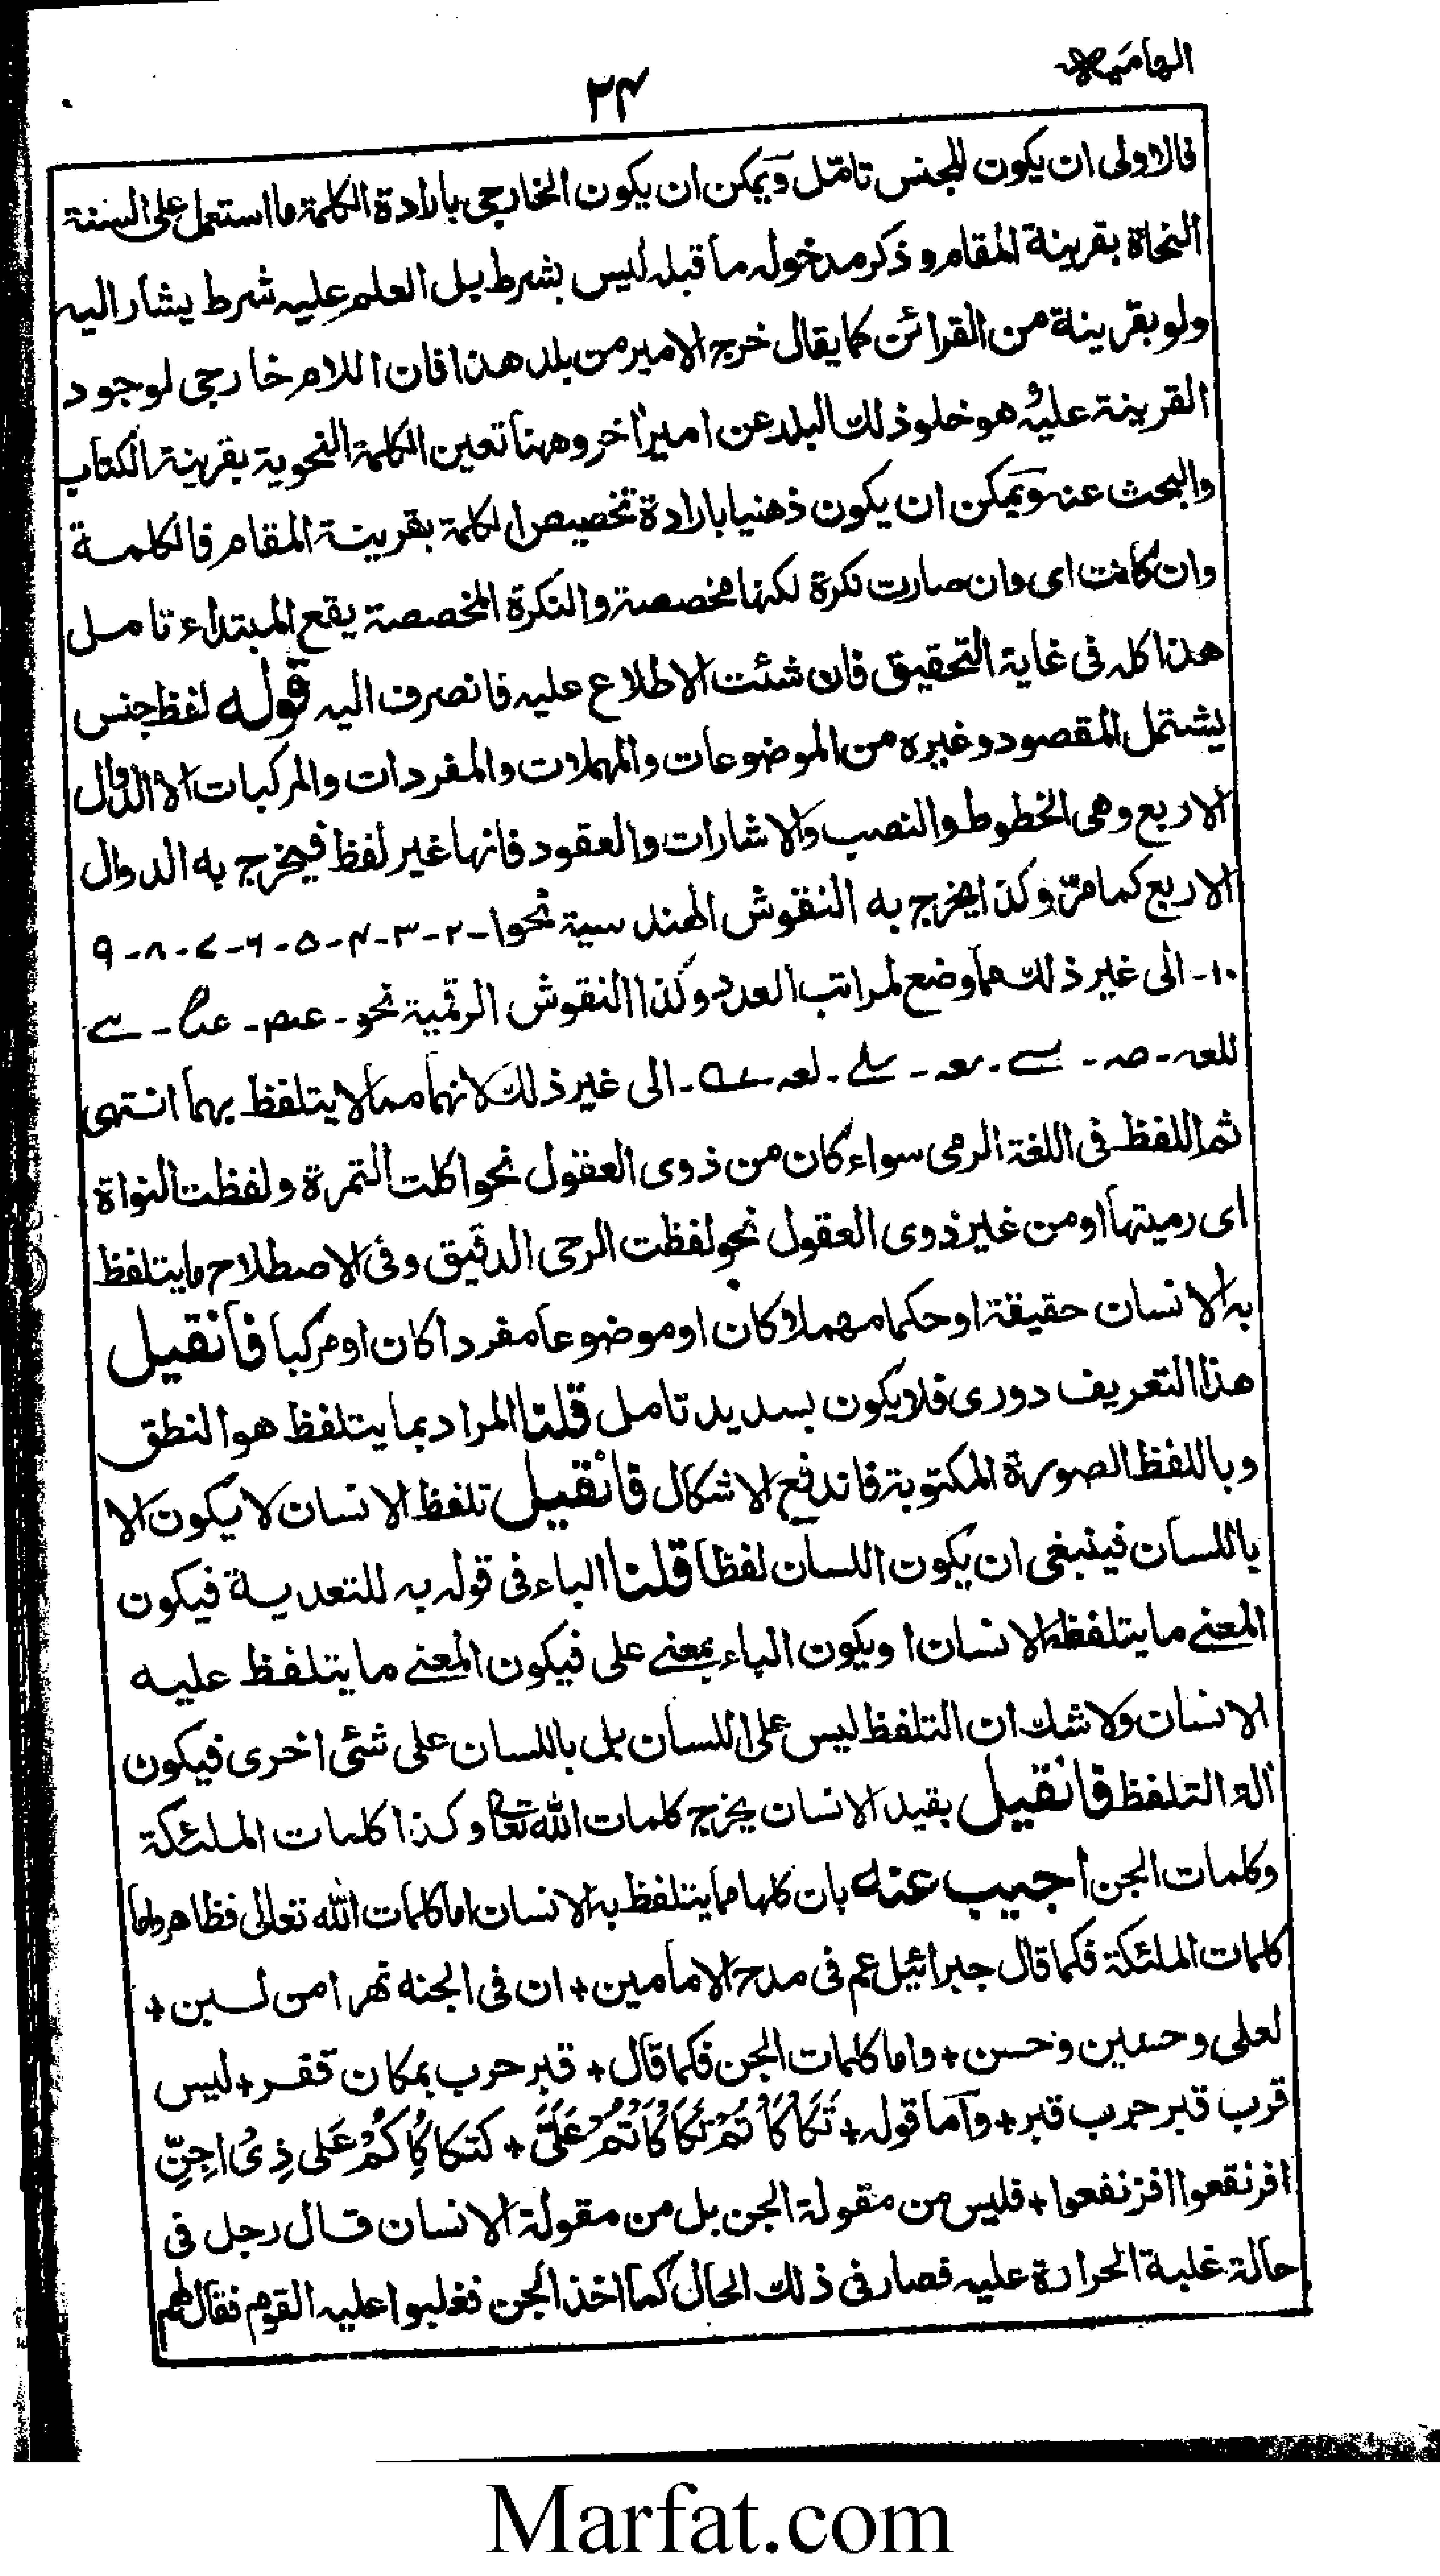 الهامية
۲۴
فالاولى ان يكون للجنس تامّل ويمكن ان يكون الخارجى بارادة الكلمة ما استعمل على السنة
النحاة بقرينة المقام و ذكر مدخوله ما قبله ليس بشرط بل العلم عليه شرط يشار اليه
ولو بقرينة من القرائن كما يقال خرج الامير من بلد هذا فان اللام خارجى لوجود
القرينة عليه هو خلو ذلك البلد عن امير اخر وههنا تعين الكلمة النحوية بقرينة الكتاب
والبحث عنه ويمكن ان يكون ذهنيا بارادة تخصيص الكلمة بقرينة المقام فالكلمة
وان كانت اى وان صارت نكرة لكنها مخصصة والنكرة المخصصة يقع المبتداء تامل
هذا كله فى غاية التحقيق فان شئت الاطلاع عليه فانصرف اليه قوله لفظ جنس
يشتمل المقصود وغيره من الموضوعات والمهملات والمفردات والمركبات الا الدوال
الاربع وهى الخطوط والنصب والاشارات والعقود فانها غير لفظ فيخرج به الدوال
الاربع كما مرّ وكذا يخرج به النقوش الهندسية نحو ۱-۲-۳-۴-۵-۶-۷-۸-۹
۱۰- الى غير ذلك مما وضع لمراتب العدد وكذا النقوش الرقمية نحو
الى غير ذلك لانهما مما لا يتلفظ بهما انتهى
ثم اللفظ فى اللغة الرمى سواء كان من ذوى العقول نحو اكلت التمرة ولفظت النواة
اى رميتها او من غير ذوى العقول نحو لفظت الرحى الدقيق وفى الاصطلاح ما يتلفظ
به الانسان حقيقة او حكما مهملا كان او موضوعا مفردا كان او مركبا فانقيل
هذا التعريف دورى فلا يكون بسديد تامل قلنا المراد بما يتلفظ هو النطق
وباللفظ الصورة المكتوبة فاندفع الاشكال فانقيل تلفظ الانسان لا يكون الا
باللسان فينبغى ان يكون اللسان لفظا قلنا الباء فى قوله به للتعدية فيكون
المعنے ما يتلفظه الانسان او يكون الباء بمعنے على فيكون المعنے ما يتلفظ عليه
الانسان ولاشك ان التلفظ ليس على اللسان بل باللسان على شئى اخرى فيكون
الة التلفظ فانقيل بقيد الانسان يخرج كلمات الله تعالى وكذا كلمات الملئكة
وكلمات الجن اجيب عنه بان كلها مما يتلفظ به الانسان اما كلمات الله تعالى فظاهر واما
كلمات الملئكة فكما قال جبرائيل عم فى مدح الامامين + ان فى الجنه نهرا من لبن +
لعلى وحسين وحسن + واما كلمات الجن فكما قال + قبر حرب بمكان قفر + ليس
قرب قبر حرب قبر + واما قوله + تَكَأْكَأْتُمْ تَكَأْكَأْتُمْ عَلَىَّ + كَتَكَأْكَأِكُمْ عَلى ذِىْ اجِنٍّ
افرنقعوا افرنفعوا + فليس من مقولة الجن بل من مقولة الانسان قال رجل فى
حالة غلبة الحرارة عليه فصار فى ذلك الحال كما اخذ الجن فغلبوا عليه القوم فقال لهم
Marfat.com